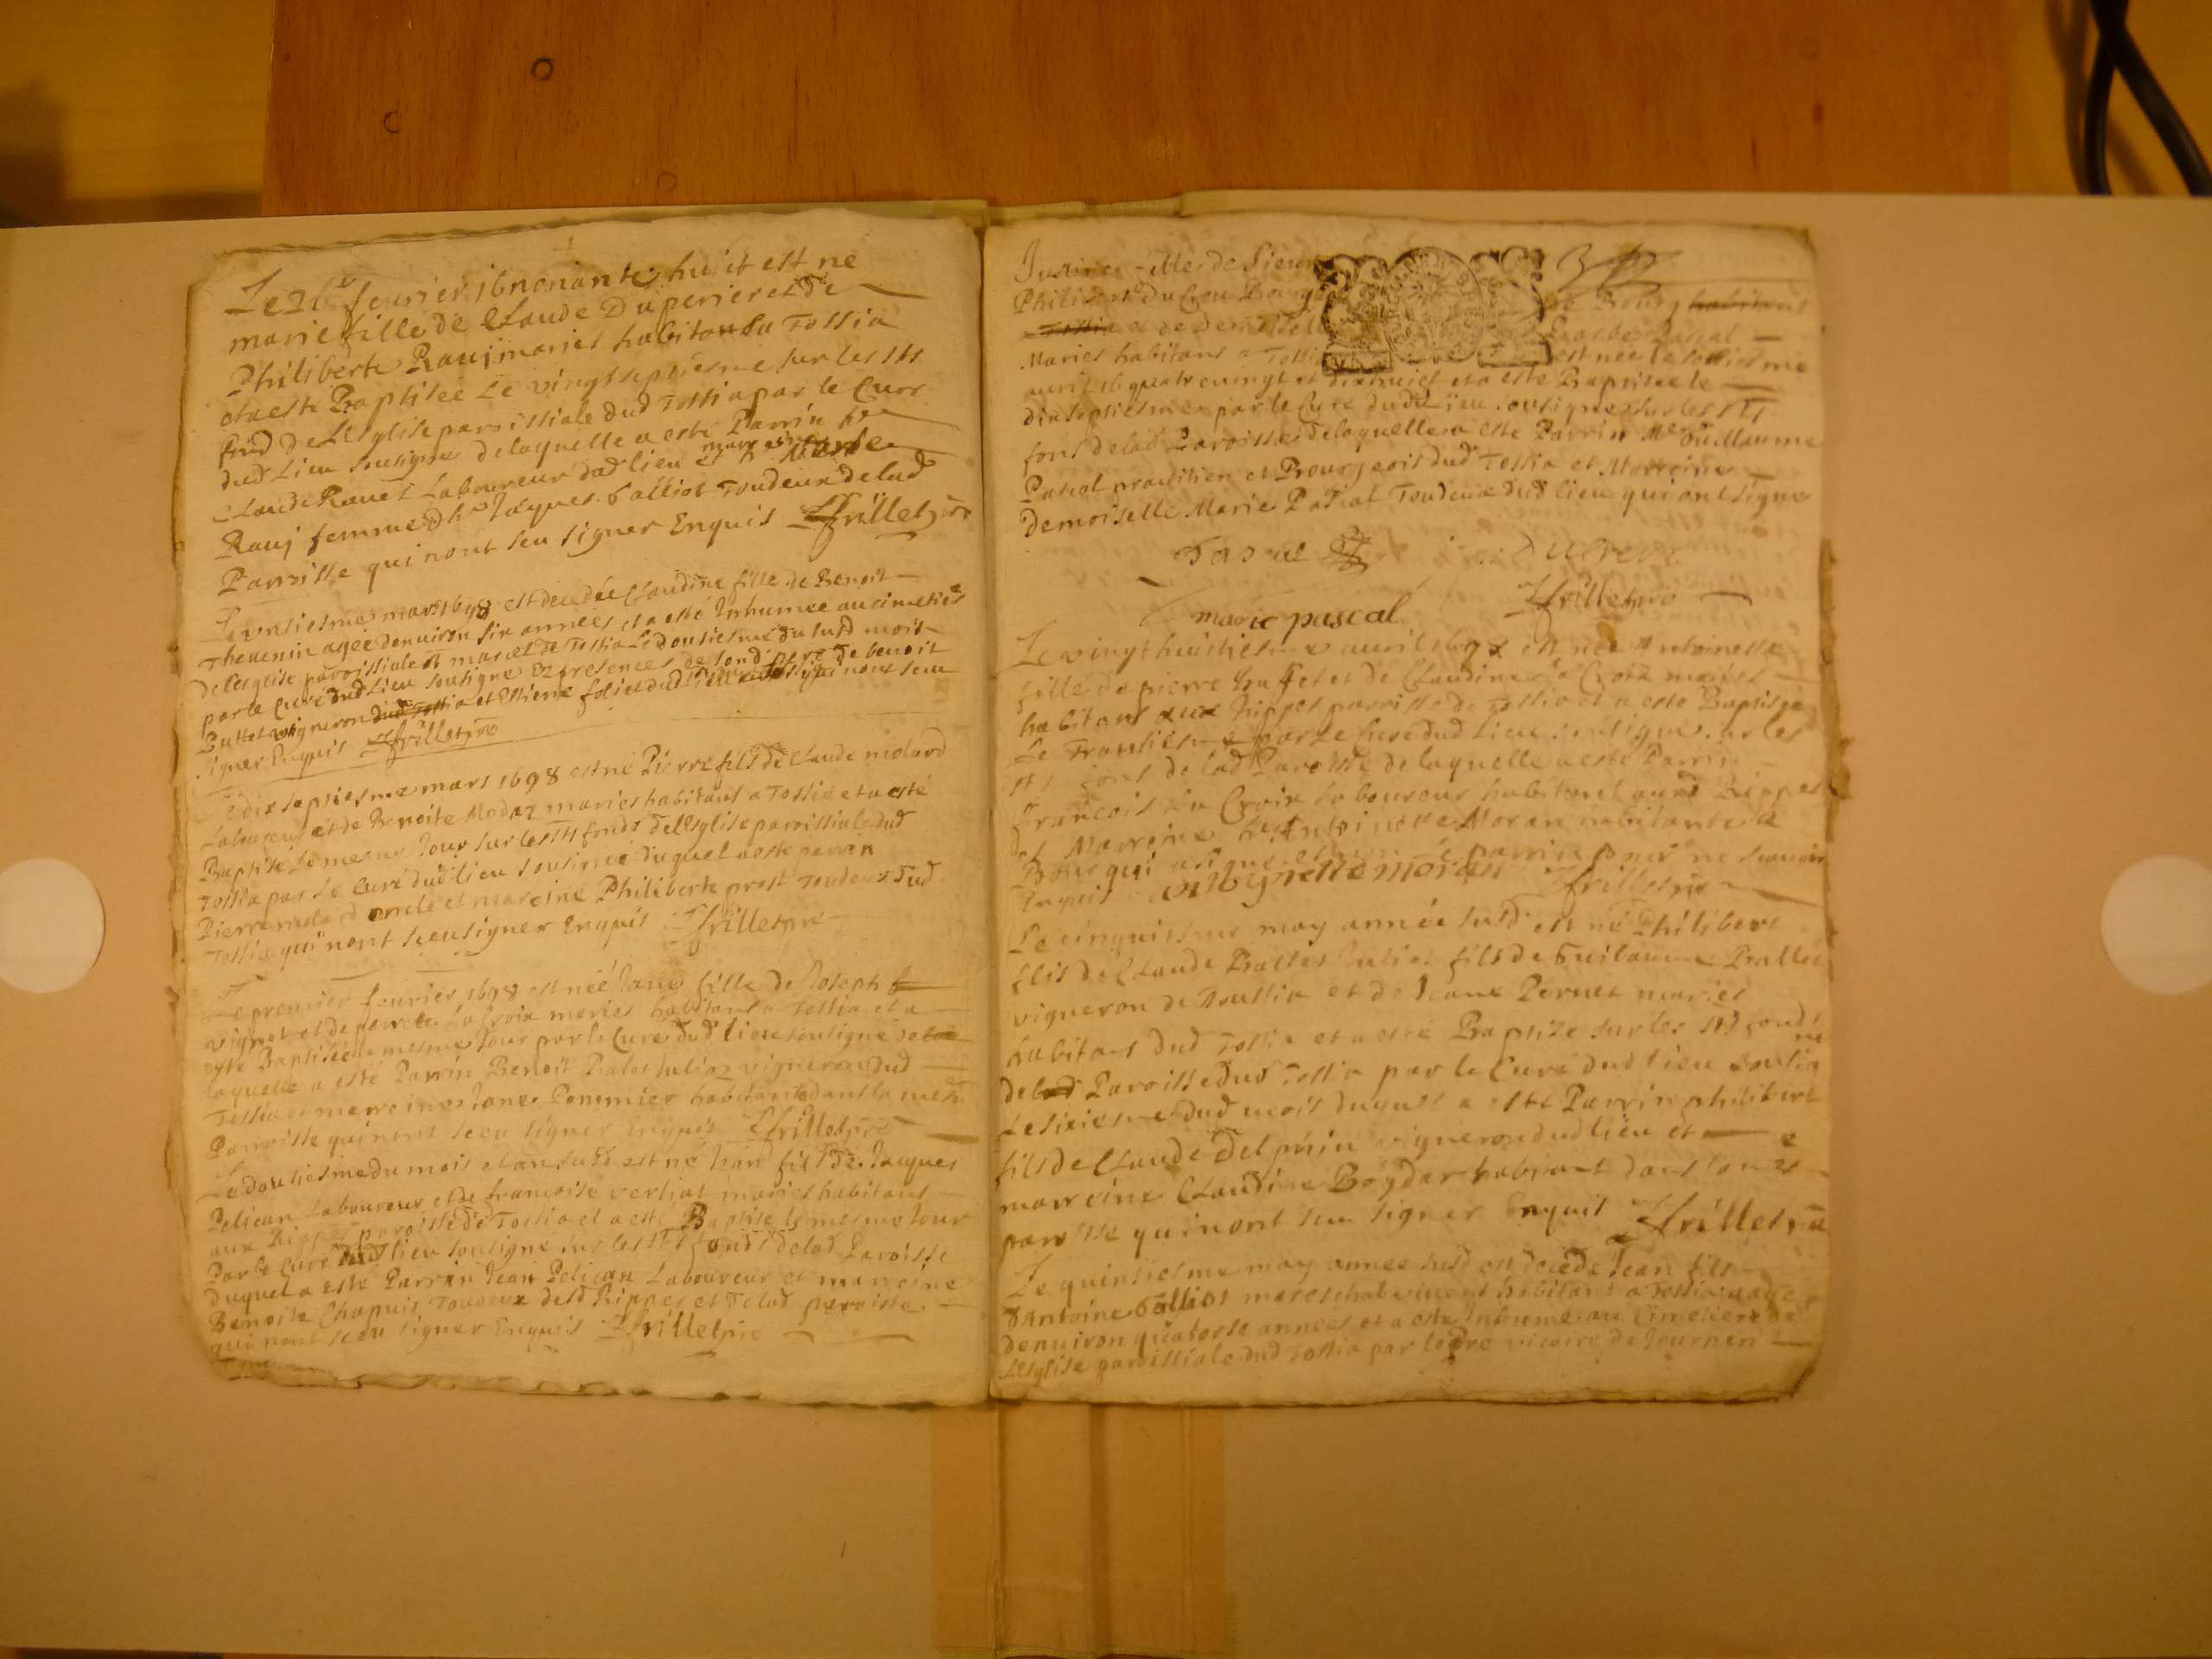 Le 26e feurier 16 nonante huit est né
marie fille de Claude Duperier et de
Philiberte Rauj mariés habitans a Tossia
et a esté Baptisée le vingt septiesme sur les sts
fond de L'Esglise paroissiale dud Tossia par le Curé
dud Lieu sousigné de laquelle a esté Parrin
Claude Rauet Laboureur dud lieu et
Rauj femme d Jaques Galliot Toudeux de lad
Parroisse qui n'ont seu signer Enquis ffrillet pre
Le onsiesme mars 1698 est decedée Claudine fille de Benoit
Theuenin agée denuiron six années et a esté Inhumée au cimetiere
de lesglise paroissiale de Tossia Le dousiesme du susd mois
par le Curé dud Lieu sousigné En presence de benoit
Buthet vigneron dud Tossia et Estiene qui nont seu
signer Enquis ffrillet pre
Le dix septiesme mars 1698 est né Pierre fils de Claude molard
Laboureur et de Benoite Modaz mariés habitans a Tossia et a esté
Baptisé Le mesme Jour sur les sts fonds de lesglise paroissiale dud
Tossia par Le Curé dud lieu sousigné duquel a esté parrin
Pierre molard oncle et mareine Philiberte prost Toudeux dud
Tossia qui nont sceu signer Enquis ffrillet pre
Le premier feurier 1698 est née Jane fille de Joseph
vignot et de perrete La Croix mariés habitans a Tossia et a
esté Baptisée le mesme Jour par le Curé dud lieu sousigné de
laquelle a esté Parrin Benoit Ralet Julion vigneron dud
Tossia et marreine Jane Pommier habitants dans la mesme
Parroisse qui nont sceu signer Enquis ffrillet pre
Le dousiesme du mois et an susd est né Jean fils de Jacques
Pelican Laboureur et de francoise mariés habitans
aux Rippes paroisse de Tossia et a esté Baptisé le mesme Jour
Par le Curé dud lieu sousigné sur les sts fonds de lad Paroisse
Duquel a esté Parrin Jean Pelican Laboureur et marreine
Benoite Chapuis Toudeux desd Rippes et de lad paroisse
qui nont sceu signer Enquis ffrillet pre
fille de sieur
Philibert Du Creu Bourg de Bourg habitans
Tossia et de demoiselle Pascal
Mariés habitans a Tossia est née le
auril 16 quatre vingt et dixhuict et a esté Baptisée le
dixseptiesme par le Curé dud Lieu sousigné sur les sts
fons de lad Paroisse de laquelle a esté Parrin Me Guillaume
Pascal practitien et Bourgeois dud Tossia et Marreine
demoiselle Marie Pascal Toudeux dud lieu qui ont signé
Pascal Ducreux
marie pascal ffrillet pre
Le vingt huictiesme auril 1698 est née Antoinette
fille de pierre et de Claudine La Croix mariés
habitans aux Rippes parroisse de Tossia et a esté Baptisée
Le Trantiesme par Le Curé dud Lieu sousigné sur les
sts fons de lad Paroisse de laquelle a esté Parrin
francois La Croix Laboureur habitant aud Rippes
et Marreine Antoinette Moran habitante a
Bourg qui a signé parrin ne scauoir
Enquis antoynette moran ffrillet pre
Le cinquiesme may année susd est né Philibert
fils de Claude Rallet fils de Guilaume Rallet
vigneron de Toussia et de Jeane Pernet mariés
habitans dud Tossia et a esté Baptizé sur les sts fonds
de lad Paroisse dud Tossia par le Curé dud lieu sousigné
Le sixiesme dud mois duquel a esté Parrin philibert
fils de Claude Delphin vigneron dud lieu et
marreine Claudine Boydar habitant dans la
paroisse qui nont seu signer Enquis ffrillet pre
Le quinsiesme may annee susd est decedé Jean fils
d'Antoine Galliot mareschal habitant a Tossia agé
denuiron quatorse années et a esté Inhumé au Cimetiere de
Lesglise paroissiale dud Tossia par vicaire de Journen